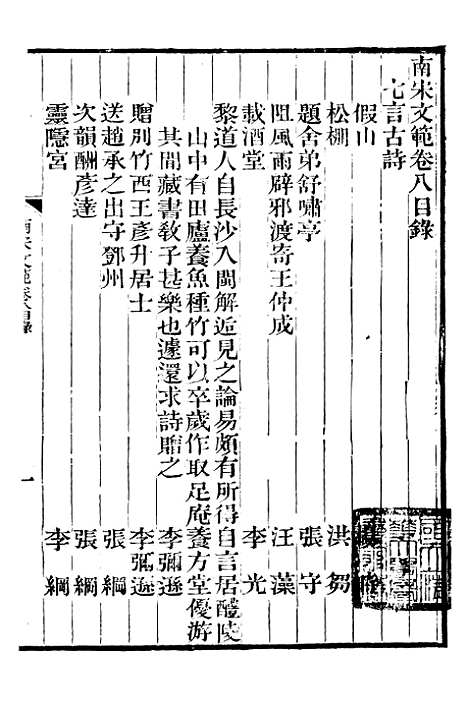 南宋文範卷八目錄
七言古詩
假山
松棚 洪芻
題舍弟舒嘯亭 張守
阻風雨辟邪渡寄王仲成 汪藻
載酒堂 李光
黎道人自長沙入閩解逅見之論易頗有所得自言居醴陵
山中有田廬養魚種竹可以卒歲作取足庵養方堂優游
其間藏書敎子甚樂也遽還求詩贈之 李彌遜
贈別竹西王彥升居士 李彌遜
送趙承之出守鄧州 張綱
次韻酬彥達 張綱
靈隱宮 李綱
南宋文範卷八目錄
一